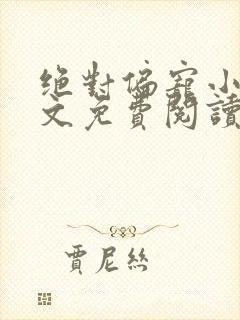 絕對偏寵小
文免費閱讀
賈尼絲